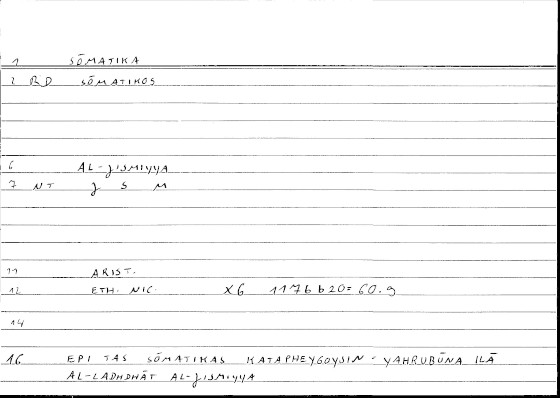 1 SŌMATIKA
2 RD SŌMATIKOS
6 AL-JISMIYYA
7 NT J S M
11 ARIST.
12 ETH. NIC. X6 1176 b 20 = 60.9
14
16 EPI TAS SŌMATIKAS KATAPHEYGOYSIN - YAHRUBŪNA ILĀ
AL-LADHDHĀT AL-JISMIYYA